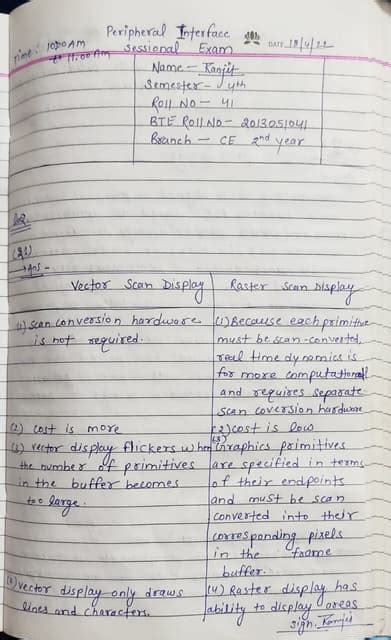 Peripheral Interface
Sessional Exam
Time: 10:00 AM
to 11:00 AM
DATE 18/4/22
Name - Ranjit
Semester - 4th
Roll NO - 41
BTE Roll NO - 2013051041
Branch - CE 2nd year
(a)
Ans -
Vector Scan Display
Raster Scan Display
(1) scan conversion hardware
is not required.
(1) Because each primitive
must be scan-converted,
real time dynamics is
for more computational
and requires separate
scan coversion hardware
(2) cost is more
(2) cost is low
(3) vector display flickers when
the number of primitives
in the buffer becomes
too large.
(3) Graphics primitives
are specified in terms
of their endpoints
and must be scan
converted into their
corresponding pixels
in the frame
buffer.
(4) vector display only draws
lines and characters.
(4) Raster display has
ability to display areas
Sign. Ranjit